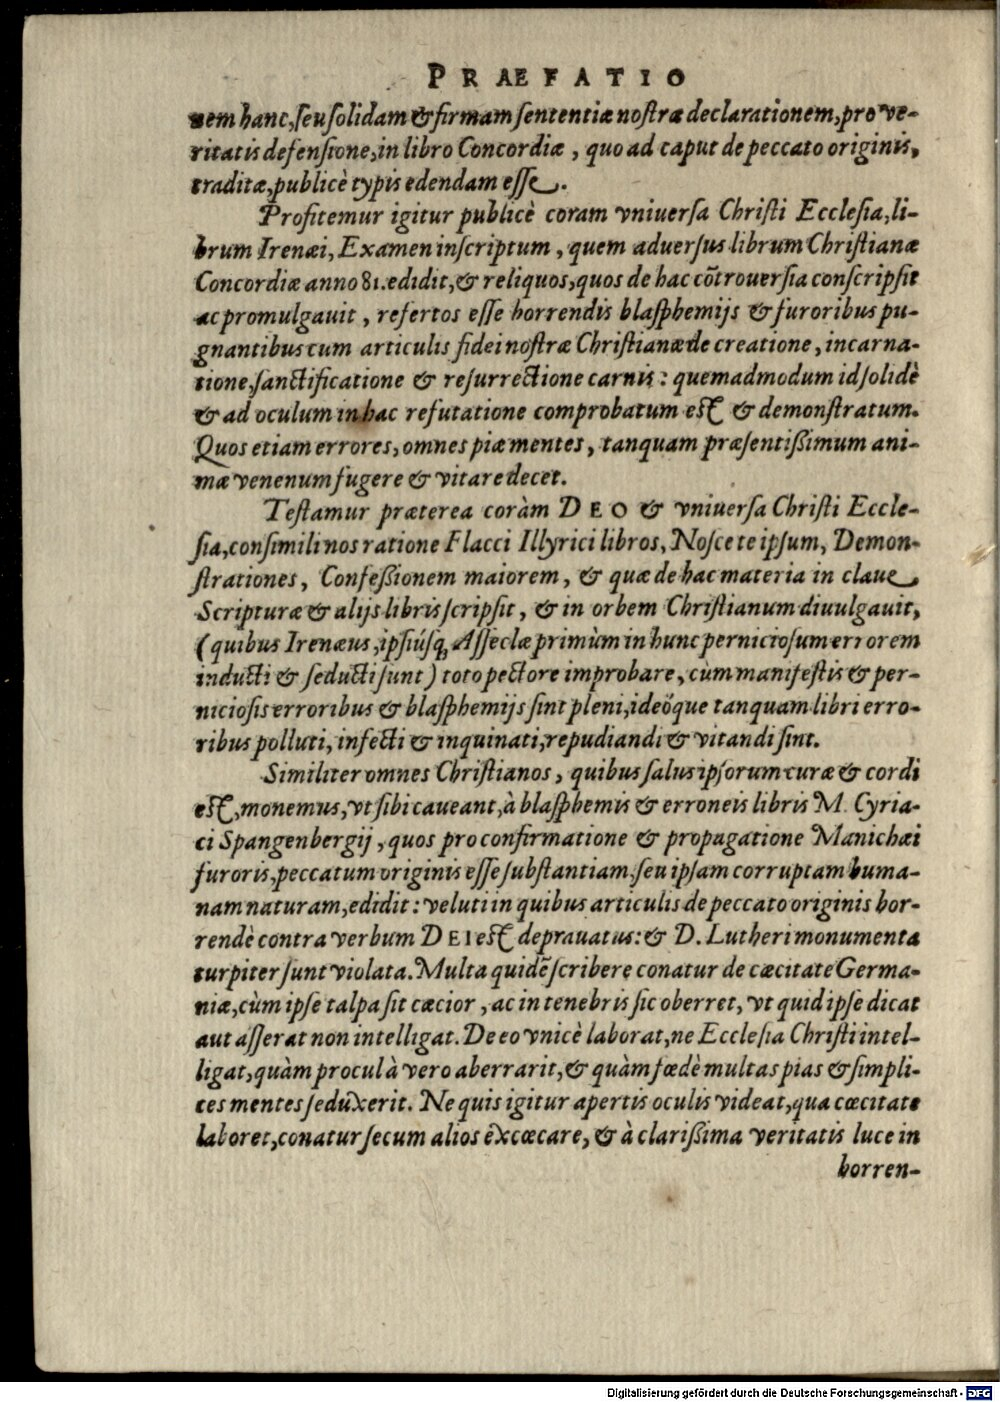 PRÆFATIO
nem hanc, ſeu ſolidam & firmam ſententiæ noſtræ declarationem, pro ve-
ritatis defenſione, in libro Concordiæ, quo ad caput de peccato originis,
traditæ, publicè typis edendam eſſe.
Profitemur igitur publicè coram vniuerſa Chriſti Eccleſia, li-
brum Irenæi, Examen inſcriptum, quem aduerſus librum Chriſtianæ
Concordiæ anno 81. edidit, & reliquos, quos de hac cõtrouerſia conſcripſit
ac promulgauit, refertos eſſe horrendis blaſphemijs & furoribus pu-
gnantibus cum articulis fidei noſtræ Chriſtianæ de creatione, incarna-
tione, ſanctificatione & reſurrectione carnis: quemadmodum id ſolidè
& ad oculum in hac refutatione comprobatum eſt & demonſtratum.
Quos etiam errores, omnes piæ mentes, tanquam præſentißimum ani-
mæ venenum fugere & vitare decet.
Teſtamur præterea coràm DEO & vniuerſa Chriſti Eccle-
ſia, conſimili nos ratione Flacci Illyrici libros, Noſce te ipſum, Demon-
ſtrationes, Confeßionem maiorem, & quæ de hac materia in claue
Scripturæ & alijs libris ſcripſit, & in orbem Chriſtianum diuulgauit,
(quibus Irenæus, ipſiúsq́; Aſſeclæ primùm in hunc pernicioſum errorem
inducti & ſeducti ſunt) toto pectore improbare, cùm manifeſtis & per-
nicioſis erroribus & blaſphemijs ſint pleni, ideóque tanquam libri erro-
ribus polluti, infecti & inquinati, repudiandi & vitandi ſint.
Similiter omnes Chriſtianos, quibus ſalus ipſorum curæ & cordi
eſt, monemus, vt ſibi caueant, à blaſphemis & erroneis libris M. Cyria-
ci Spangenbergij, quos pro confirmatione & propagatione Manichæi
furoris, peccatum originis eſſe ſubſtantiam, ſeu ipſam corruptam huma-
nam naturam, edidit: veluti in quibus articulis de peccato originis hor-
rendè contra verbum DEI eſt deprauatus: & D. Lutheri monumenta
turpiter ſunt violata. Multa quidẽ ſcribere conatur de cæcitate Germa-
niæ, cùm ipſe talpa ſit cæcior, ac in tenebris ſic oberret, vt quid ipſe dicat
aut aſſerat non intelligat. De eo vnicè laborat, ne Eccleſia Chriſti intel-
ligat, quàm procul à vero aberrarit, & quàm fœdè multas pias & ſimpli-
ces mentes ſeduxerit. Ne quis igitur apertis oculis videat, qua cœcitate
laboret, conatur ſecum alios excœcare, & à clarißima veritatis luce in
horren-
Digitalisierung gefördert durch die Deutsche Forschungsgemeinschaft - DFG